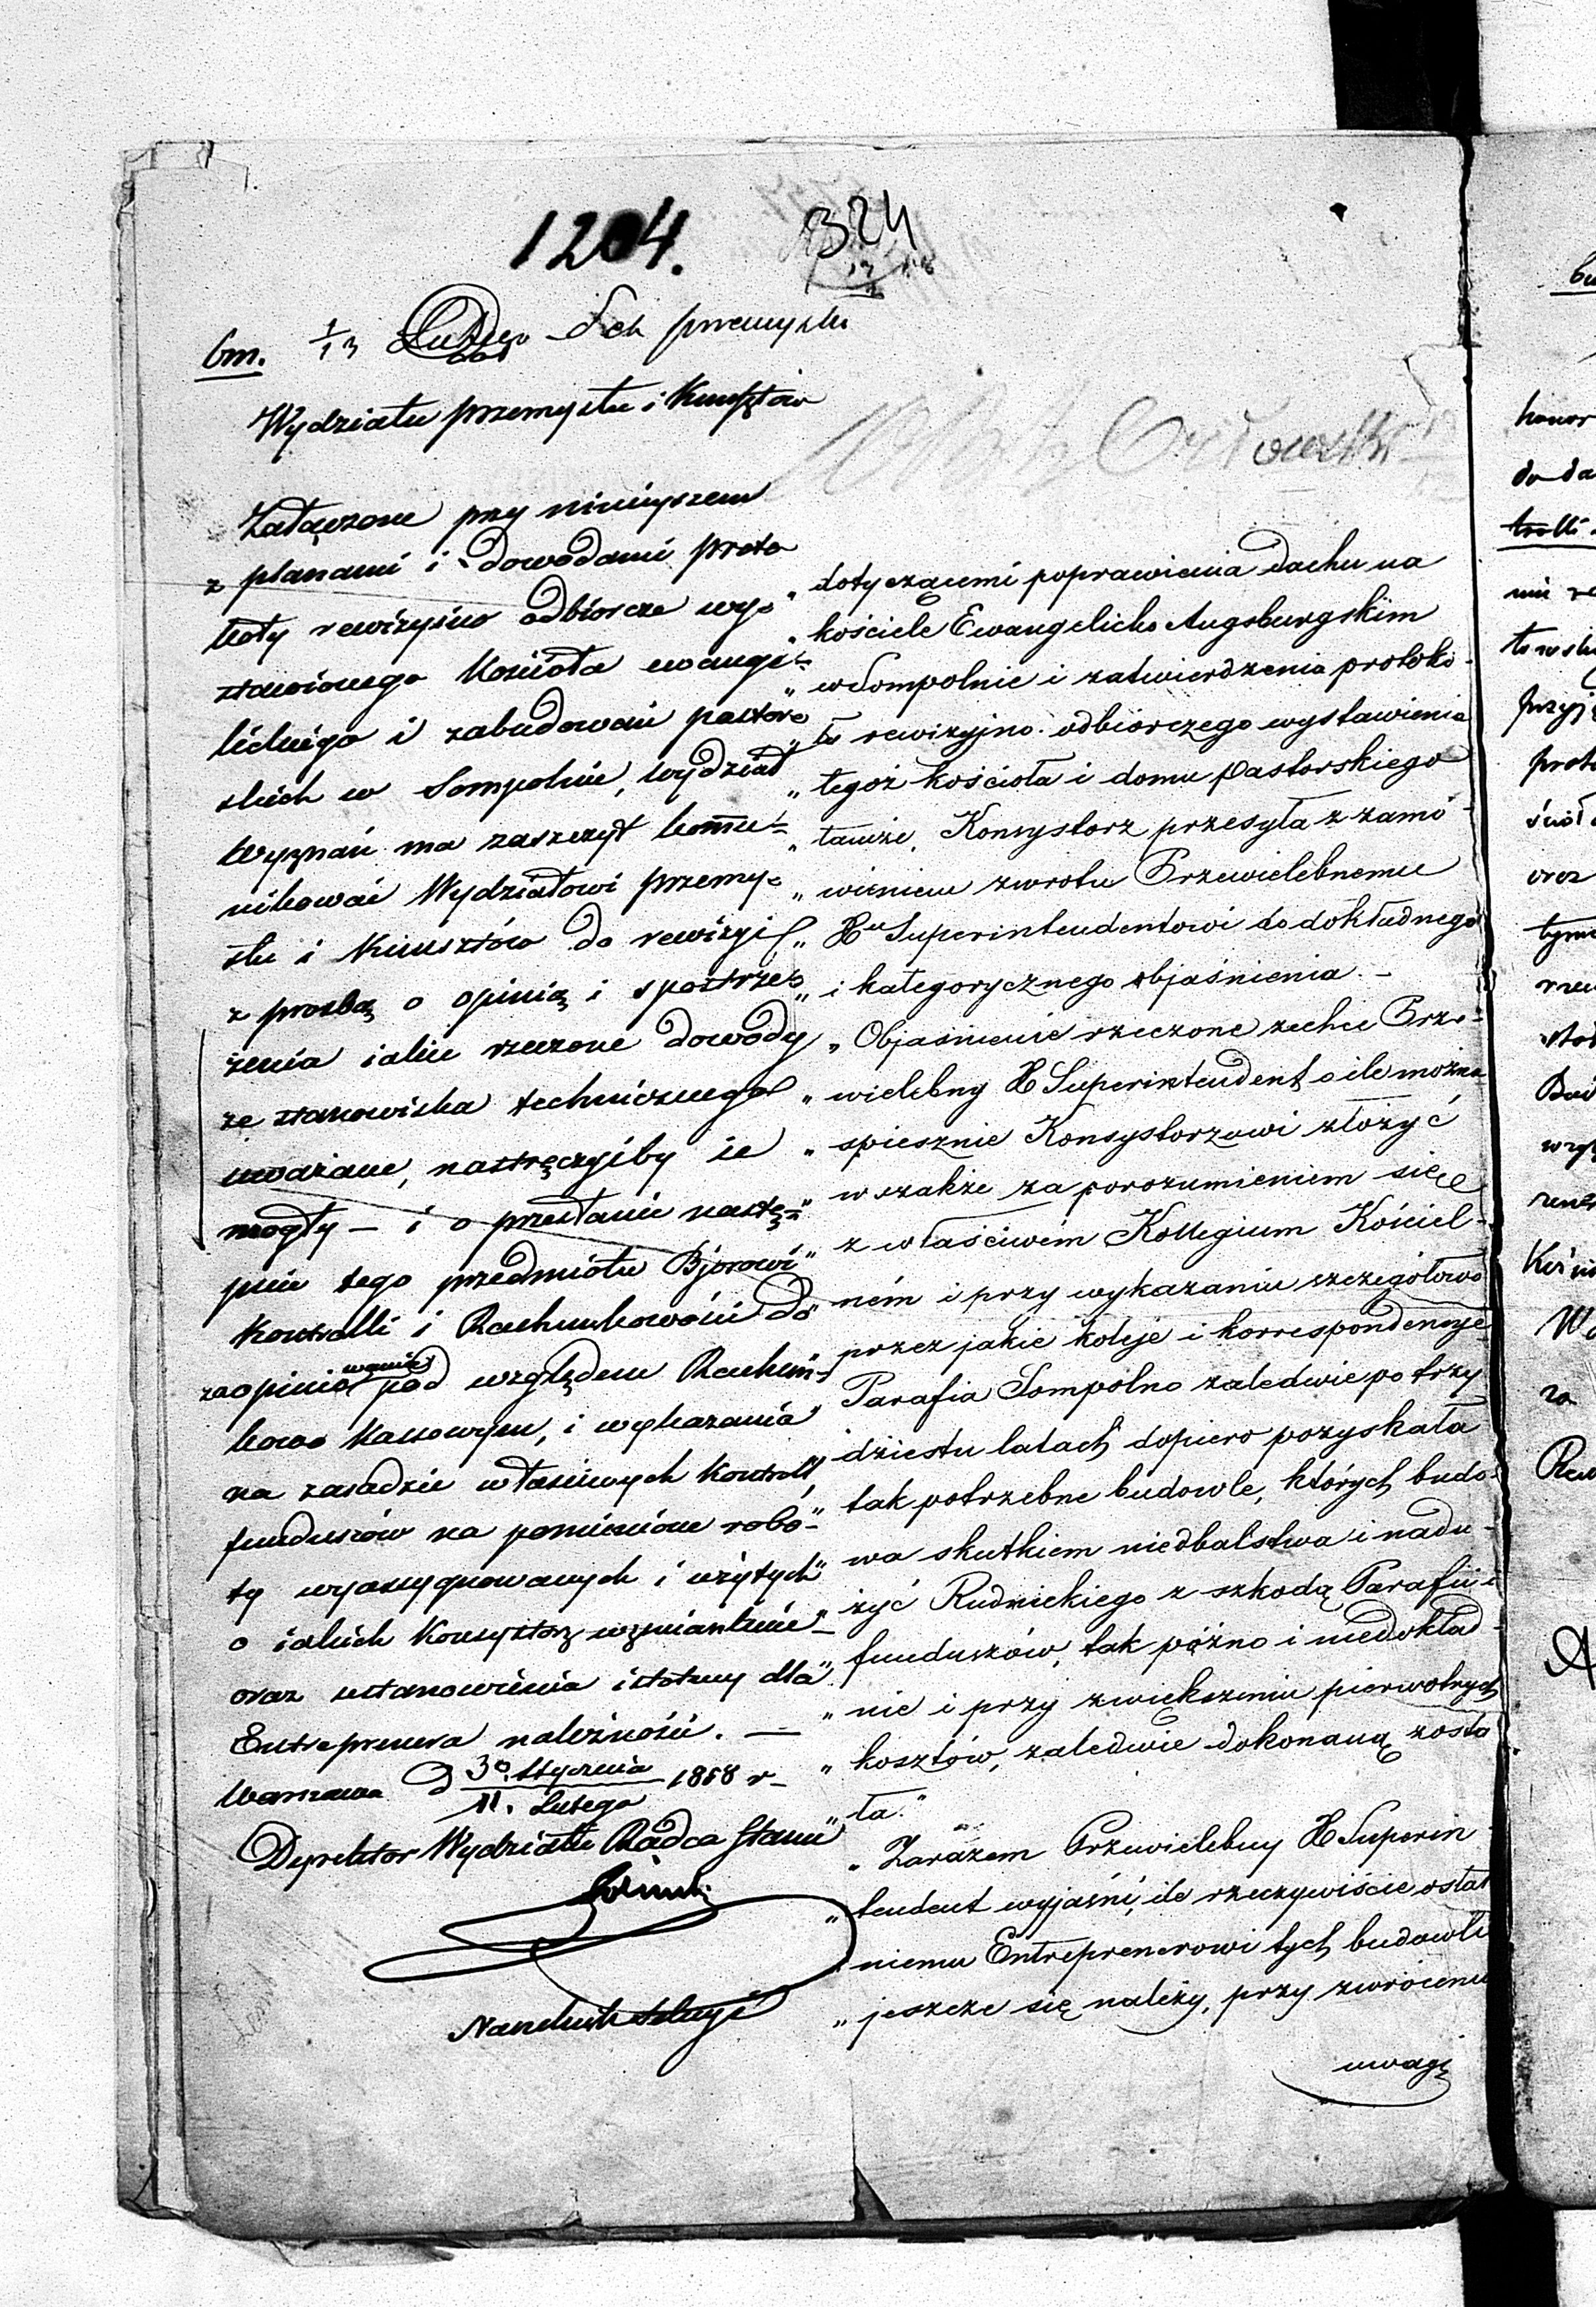 1204.
324
6m. 1/13 Lutego Sek przemysłu
Wydziału przemysłu i Kunsztów
Załączone przy niniejszem
z planami i dowodami proto
koły rewizyjno odbiorcze wy=
stawionego Kościoła ewange=
lickiego i zabudowań pastor=
skich w Sompolnie, wydział
Wyznań ma zaszczyt komu=
nikować Wydziałowi przemy=
słu i Kunsztów do rewizyi
z prośbą o opinią i spostrze=
żenia iakie rzeczone dowody
ze stanowiska technicznego
uważane, nastręczyćby ie
mogły — i o przesłanie nastę=
pnie tego przedmiotu Bjorowi
Kontrolli i Rachunkowości do
zaopiniowania pod względem Rachun=
kowo Kassowym, i wykazania
na zasadzie właściwych Kontroll
funduszów na pomienione robo=
ty wyassygnowanych i użytych
o iakich Konsystorz wzmiankuie
oraz ustanowienia istotney dla
Entreprenera należności. —
Warszawa d 30 Stycznia / 11. Lutego 1858 r.
Dyrektor Wydziału Radca Stanu
Naczelnik Sekcyi
„dotyczącemi poprawienia dachu na
„kościele Ewangelicko Augsburgskim
„w Sompolnie i zatwierdzenia protokó-
„łu rewizyjno-odbiorczego wystawienia
„tegoż kościoła i domu Pastorskiego
„tamże, Konsystorz przesyła z zamó-
„wieniem zwrotu Przewielebnemu
„X^u Superintendentowi do dokładnego
„i kategorycznego objaśnienia. —
„Objaśnienie rzeczone zechce Prze=
„wielebny X Superintendent o ile można
„spiesznie Konsystorzowi złożyć
„wszakże za porozumieniem się
„z właściwém Kollegium Kościel-
„ném i przy wykazaniu szczegółowo
„przez jakie koleje i korrespondencyje
„Parafia Sompolno zaledwie po trzy
„dziestu latach dopiero pozyskała
„tak potrzebne budowle, których budo-
„wa skutkiem niedbalstwa i nadu-
„żyć Rudnickiego z szkodą Parafii i
„funduszów, tak późno i niedokład-
„nie i przy zwiększeniu pierwotnych
„kosztów, zaledwie dokonaną zosta
„ła."
„Zarazem Przewielebny X Superin
„tendent wyjaśni, ile rzeczywiście ostat
„niemu Entreprenerowi tych budowli
„jeszcze się należy, przy zwróceniu
uwagi